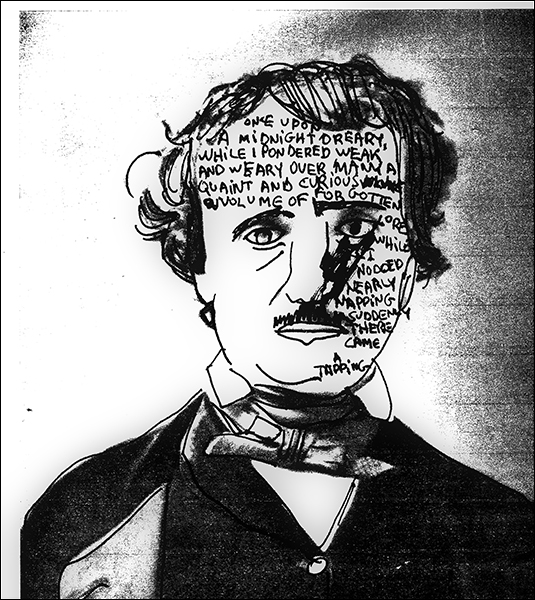 ONCE UPON
A MIDNIGHT DREARY,
WHILE I PONDERED WEAK
AND WEARY OVER MANY A
QUAINT AND CURIOUS
VOLUME OF FORGOTTEN
LORE
WHILE
I
NODDED
NEARLY
NAPPING
SUDDENLY
THERE
CAME
A
TAPPING